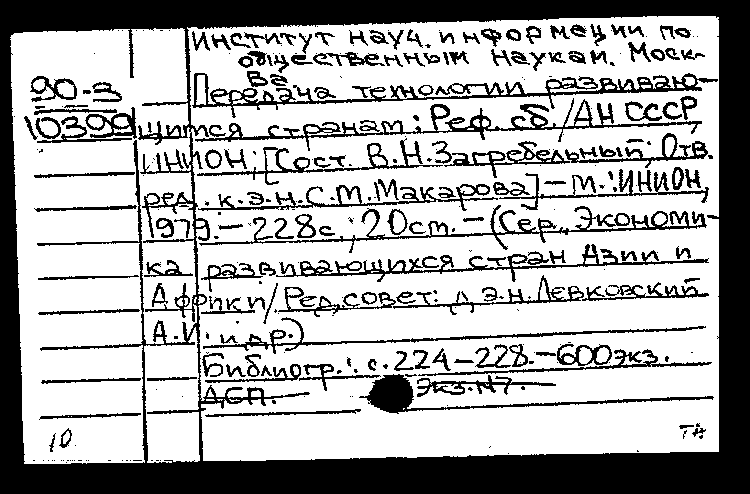 Институт науч. информации по
общественным наукам. Моск-
ва
90-3
Передача технологии развиваю-
10399
щимся странам: Реф. сб./АН СССР,
ИНИОН; [Сост. В.Н.Загребельный; Отв.
ред. к.э.н. С.М.Макарова] - М.: ИНИОН,
1979. - 228с.; 20см. - (Сер. „Экономи-
ка развивающихся стран Азии и
Африки/ Ред.совет: д.э.н. Левковский
А.И. и др.)
Библиогр.: с.224-228. - 600экз.
ДСП. - Экз.№7. -
10
ТА